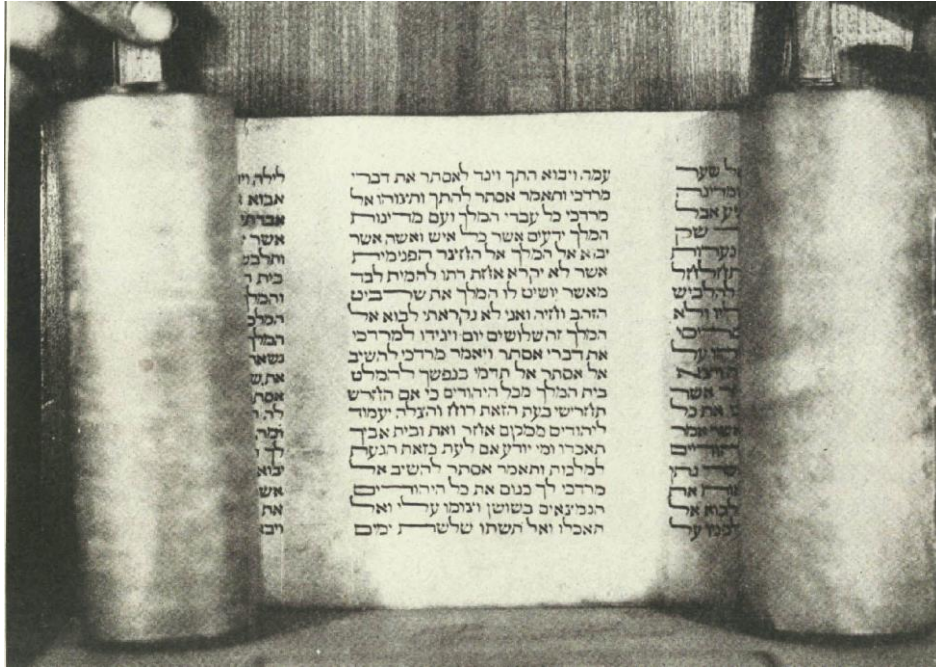 אל שער
ומדינה
אבל
שק
להלביש
ולא
על
אשר
את כל
אשר אמר
את
לבוא אל
לפניו על
עמה ויבוא התך ויגד לאסתר את דברי
מרדכי ותאמר אסתר להתך ותצוהו אל
מרדכי כל עבדי המלך ועם מדינות
המלך ידעים אשר כל איש ואשה אשר
יבוא אל המלך אל החצר הפנימית
אשר לא יקרא אחת דתו להמית לבד
מאשר יושיט לו המלך את שרביט
הזהב וחיה ואני לא נקראתי לבוא אל
המלך זה שלושים יום ויגידו למרדכי
את דברי אסתר ויאמר מרדכי להשיב
אל אסתר אל תדמי בנפשך להמלט
בית המלך מכל היהודים כי אם החרש
תחרישי בעת הזאת רוח והצלה יעמוד
ליהודים ממקום אחר ואת ובית אביך
תאבדו ומי יודע אם לעת כזאת הגעת
למלכות ותאמר אסתר להשיב אל
מרדכי לך כנוס את כל היהודים
הנמצאים בשושן וצומו עלי ואל
תאכלו ואל תשתו שלשת ימים
לילה
אבוא
אשר
ותלבש
בית
המלך
את
לה
לך
יבוא
את